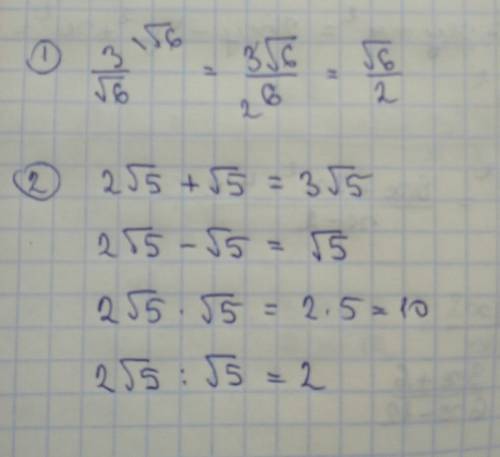 ① 3/√6 ^(\√6) = 3√6/₂6 = √6/2
② 2√5 + √5 = 3√5
2√5 − √5 = √5
2√5 · √5 = 2·5 = 10
2√5 : √5 = 2